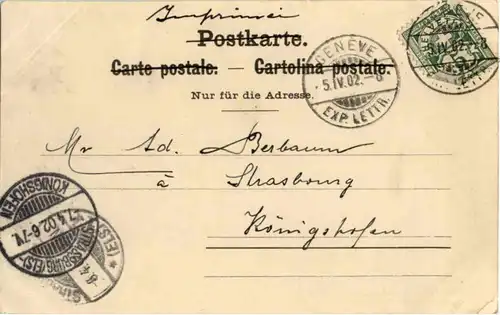 Imprimé
Postkarte.
Carte postale. — Cartolina postale.
Nur für die Adresse.
GENÈVE
5.IV.02.—8
EXP. LETTR.
5.IV.02.—8
Mr Ad. Berbaum
à
Strasbourg
Königshofen
KÖNIGSHOFEN
4.02.6-7N.
STRASSBURG (ELS)-
(ELS) *